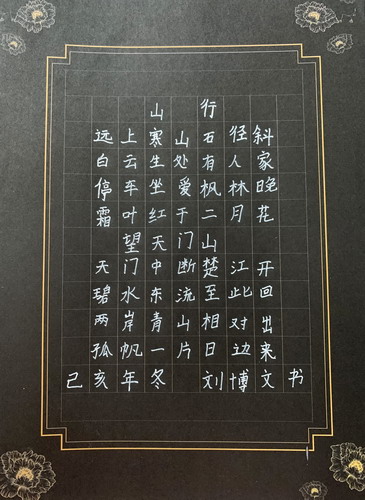 山行
远上寒山石径斜
白云生处有人家
停车坐爱枫林晚
霜叶红于二月花
望天门山
天门中断楚江开
碧水东流至此回
两岸青山相对出
孤帆一片日边来
己亥年冬 刘博文书